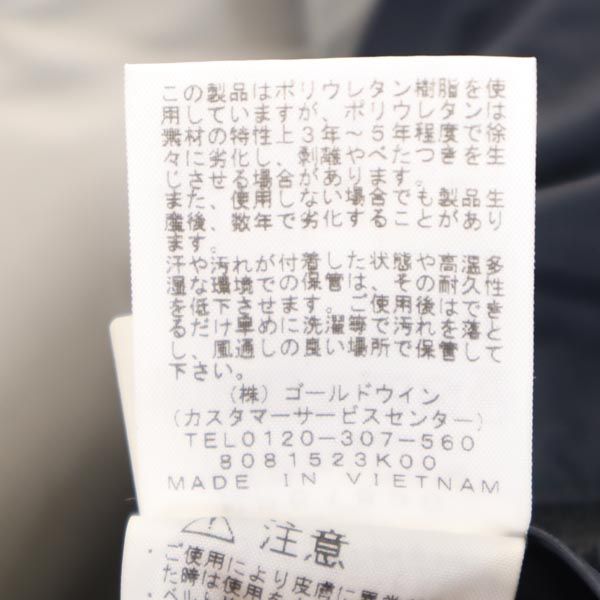 この製品はポリウレタン樹脂を使
用していますが、ポリウレタンは
素材の特性上3年～5年程度で徐
々に劣化し、剥離やべたつきを生
じさせる場合があります。
また、使用しない場合でも製品生
産後、数年で劣化することがあり
ます。
汗や汚れが付着した状態や高温多
湿な環境での保管は、その耐久性
を低下させます。ご使用後はでき
るだけ早めに洗濯等で汚れを落と
し、風通しの良い場所で保管して
下さい。
(株) ゴールドウイン
(カスタマーサービスセンター)
TEL0120-307-560
8081523K00
MADE IN VIETNAM
注意
・ご使用により皮膚に異常
た時は使用を
・ベルト